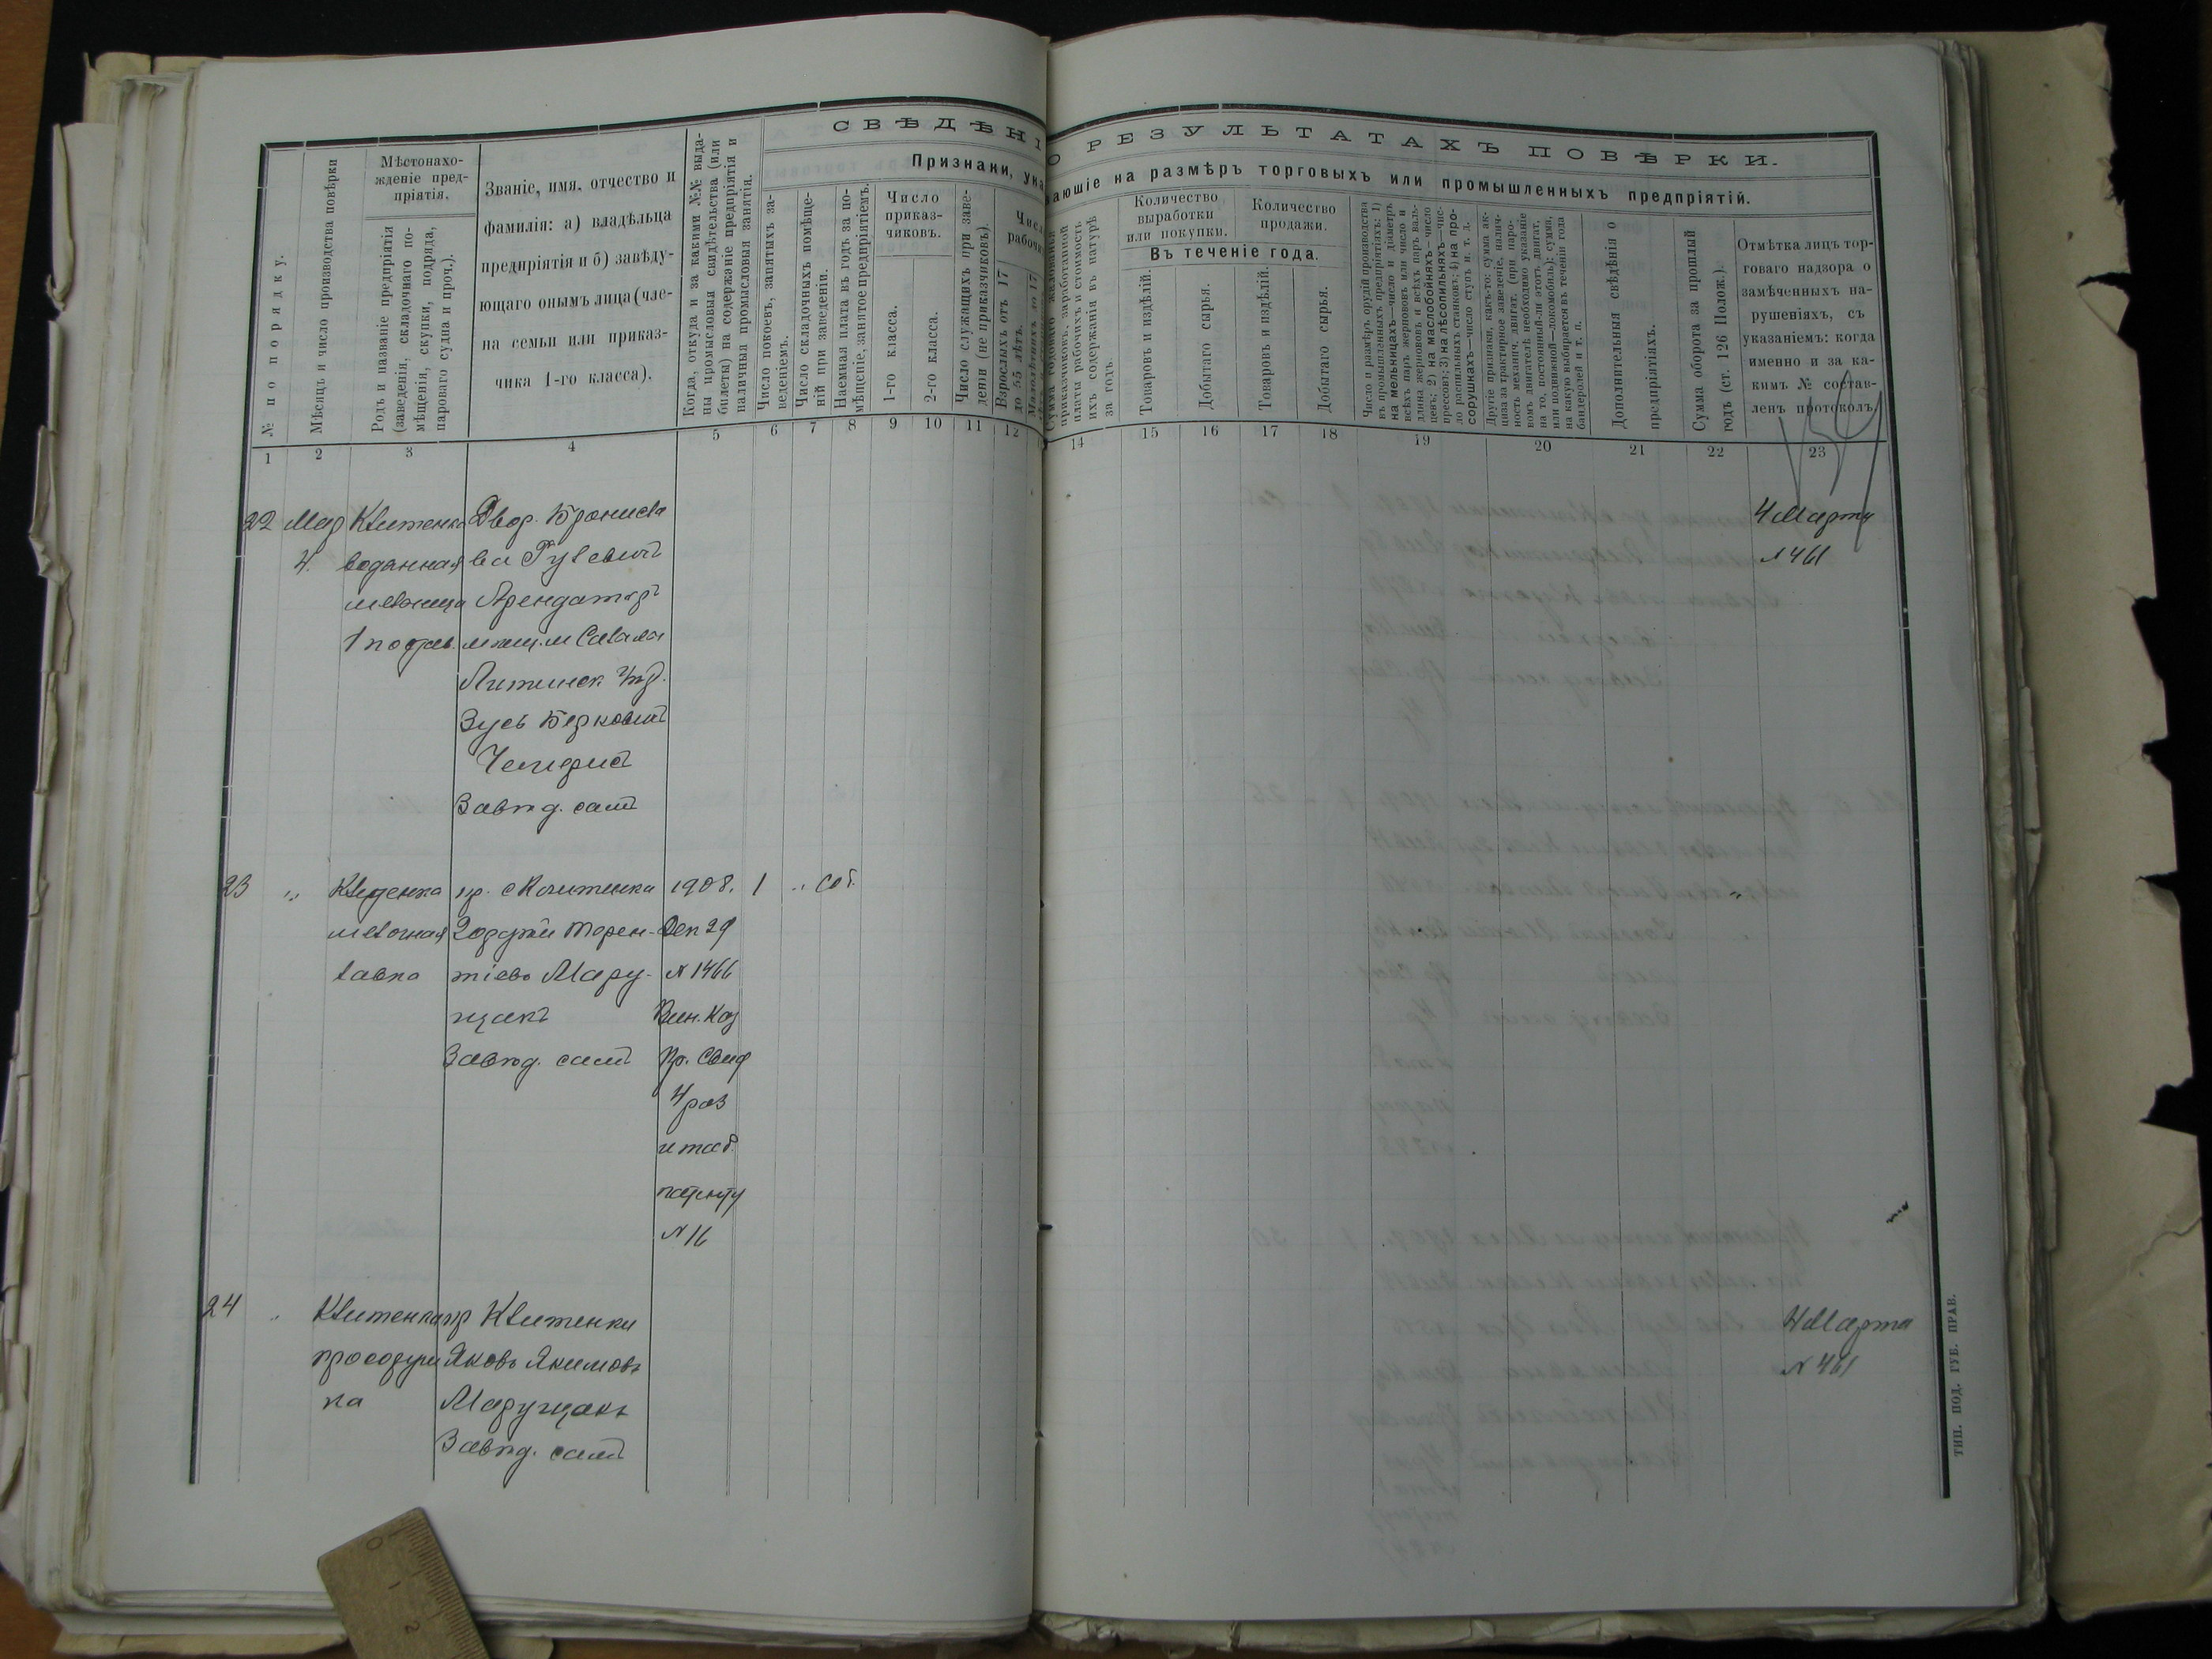 СВѢДѢНІ
О РЕЗУЛЬТАТАХЪ ПОВѢРКИ.
Признаки, ука
вающіе на размѣръ торговыхъ или промышленныхъ предпріятій.
№ по порядку.
Мѣсяцъ и число производства повѣрки
Мѣстонахо-
жденіе пред-
пріятія.
Родъ и названіе предпріятія
(заведенія, складочнаго по-
мѣщенія, скупки, подряда,
пароваго судна и проч.).
Званіе, имя, отчество и
фамилія: а) владѣльца
предпріятія и б) завѣду-
ющаго онымъ лица (чле-
на семьи или приказ-
чика 1-го класса).
Когда, откуда и за какими №№ выда-
ны промысловыя свидѣтельства (или
билеты) на содержаніе предпріятія и
на личныя промысловыя занятія.
Число покоевъ, занятыхъ за-
веденіемъ.
Число складочныхъ помѣще-
ній при заведеніи.
Наемная плата въ годъ за по-
мѣщеніе, занятое предпріятіемъ.
Число
приказ-
чиковъ.
1-го класса.
2-го класса.
Число служащихъ при заве-
деніи (не приказчиковъ).
Число
рабочи
Взрослыхъ отъ 17
до 55 лѣтъ.
приказчиковъ, заработанной
платы рабочихъ и стоимость
ихъ содержанія въ натурѣ
за годъ.
Количество
выработки
или покупки.
Количество
продажи.
Въ теченіе года.
Товаровъ и издѣлій.
Добытаго сырья.
Товаровъ и издѣлій.
Добытаго сырья.
Число и размѣръ орудій производства
въ промышленныхъ предпріятіяхъ: 1)
на мельницахъ—число и діаметръ
всѣхъ паръ жернововъ или число и
длина жернововъ и всѣхъ паръ валь-
цевъ; 2) на маслобойняхъ—число
прессовъ; 3) на лѣсопильняхъ—чис-
ло распильныхъ станковъ; 4) на про-
сорушкахъ—число ступъ и т. д.
Другіе признаки, какъ-то: сумма ак-
циза за трактирное заведеніе, налич-
ность механич. двигат. (при паро-
вомъ двигателѣ необходимо указаніе
на то, постоянный-ли этотъ двигат.
или подвижной—локомобиль); сумма,
на какую выбирается въ теченіи года
бандеролей и т. п.
Дополнительныя свѣдѣнія о
предпріятіяхъ.
Сумма оборота за прошлый
годъ (ст. 126 Полож.).
Отмѣтка лицъ тор-
говаго надзора о
замѣченныхъ на-
рушеніяхъ, съ
указаніемъ: когда
именно и за ка-
кимъ № состав-
ленъ протоколъ.
1 2 3 4 5 6 7 8 9 10 11 12 14 15 16 17 18 19 20 21 22 23
22 Мар Квитенка Двор. Бронисла 4 Марта
4. водянная ва Гулевичъ № 461
мельница Арендаторъ
1 постав. мѣщ. м
Литинск
Зусь Берковичъ
Завѣд. самъ
23 " пр. с Квитенки 1908. 1 " Соб.
мелочная Терен- Дек 29
лавка тіевъ Мару- № 1466
щакъ Вин. Каз
Завѣд. самъ Пр. Свид
4 раз
и таб.
патенту
№ 16
24 " Квитенка кр Квитенки 4 Марта
просоруш Яковъ Якимовъ № 461
ка Марущакъ
Завѣд. самъ
ТИП. ПОД. ГУБ. ПРАВ.